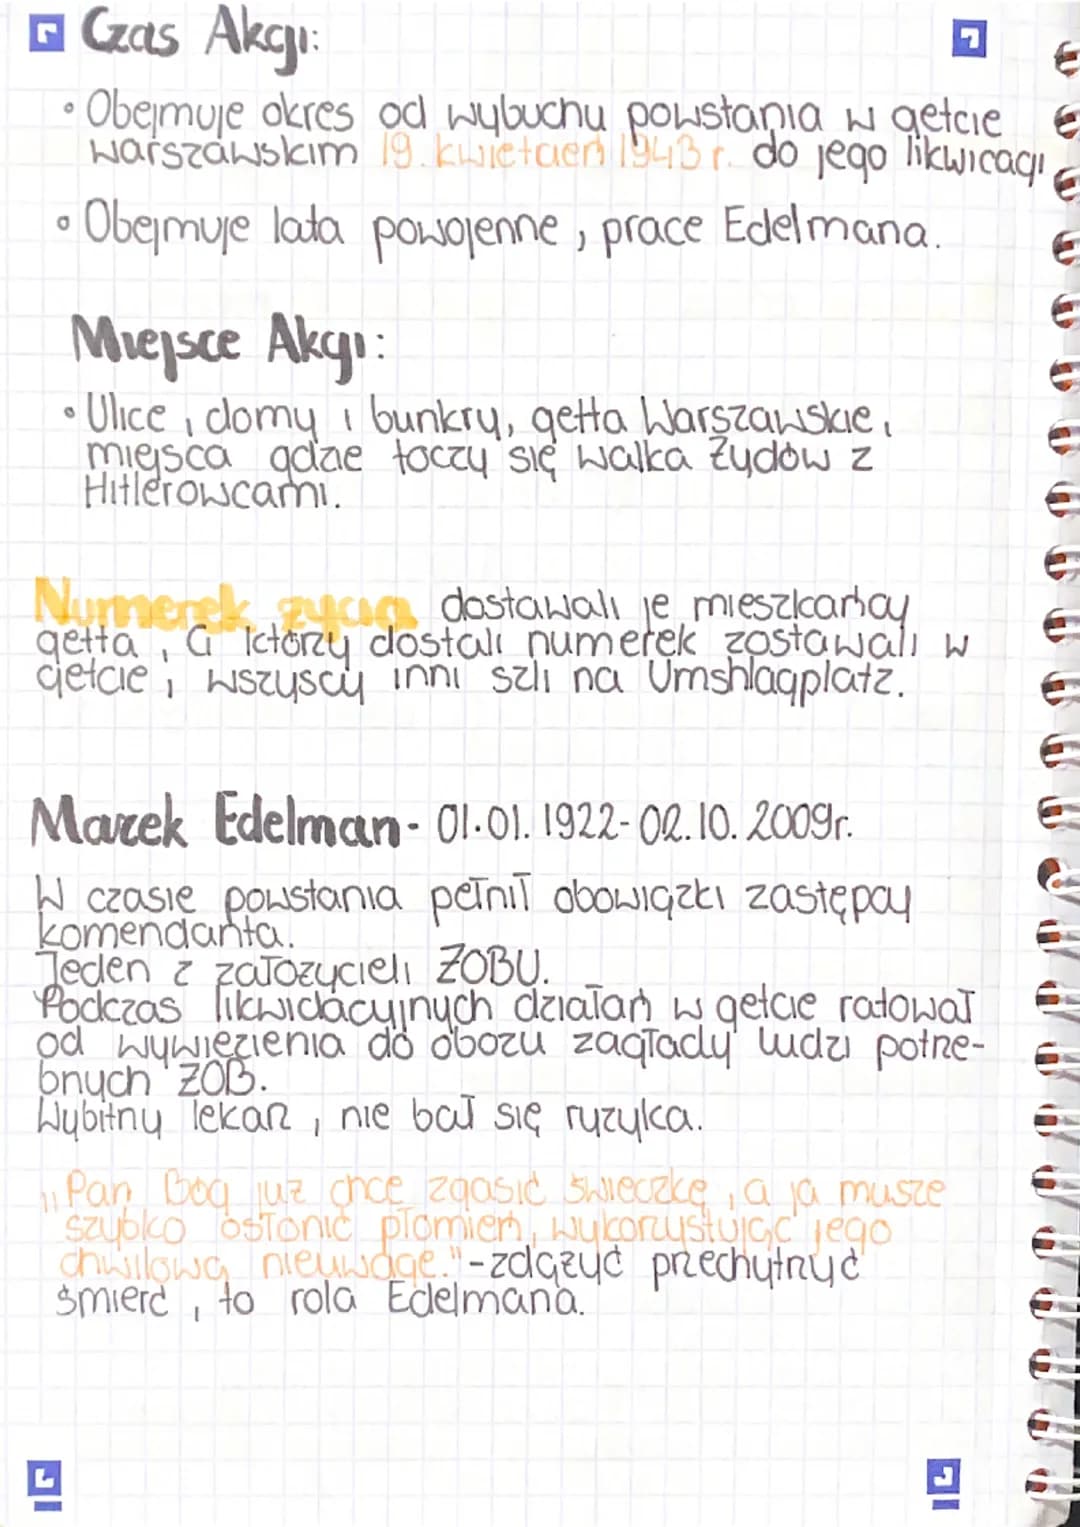 Czas Akcji:
• Obejmuje okres od wybuchu powstania w getcie
warszawskim 19. kwietcień 1943 r. do jego likwicacji
• Obejmuje lata powojenne, prace Edelmana.
Miejsce Akcji:
• Ulice, domy i bunkry, getta Warszawskie,
miejsca gdzie toczy się walka Żydów z
Hitlerowcami.
Numerek życia dostawali je mieszkańcy
getta, Ci którzy dostali numerek zostawali w
getcie, wszyscy inni szli na Umshlagplatz.
Marek Edelman - 01.01.1922-02.10.2009r.
W czasie powstania pełnił obowiązki zastępcy
komendanta.
Jeden z założycieli ŻOBU.
Podczas likwidacyjnych działań w getcie ratował
od wywiezienia do obozu zagłady ludzi potrze-
bnych ŻOB.
Wybitny lekarz, nie bał się ryzyka.
"Pan Bóg już chce zgasić świeczkę, a ja musze
szybko osłonić płomień, wykorzystując jego
chwilową nieuwagę." - zdążyć przechytrzyć
śmierć, to rola Edelmana.